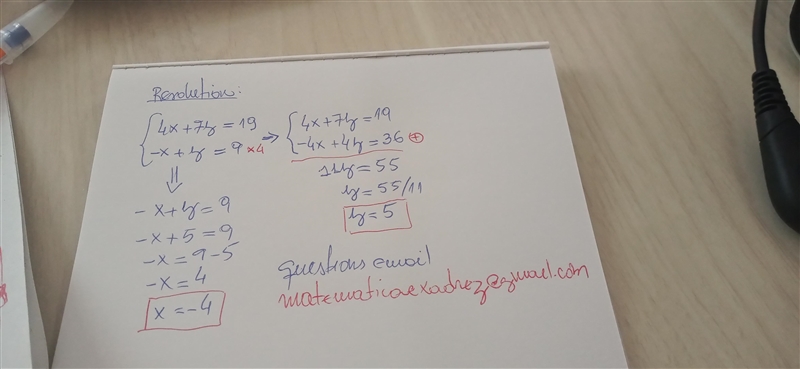 Resolution:
4x+7y=19
-x+y=9 ×4
⇒
4x+7y=19
-4x+4y=36 ⊕
11y=55
y=55/11
y=5
⇓
-x+y=9
-x+5=9
-x=9-5
-x=4
x=-4
questions email
matematicaexadrez@gmail.com